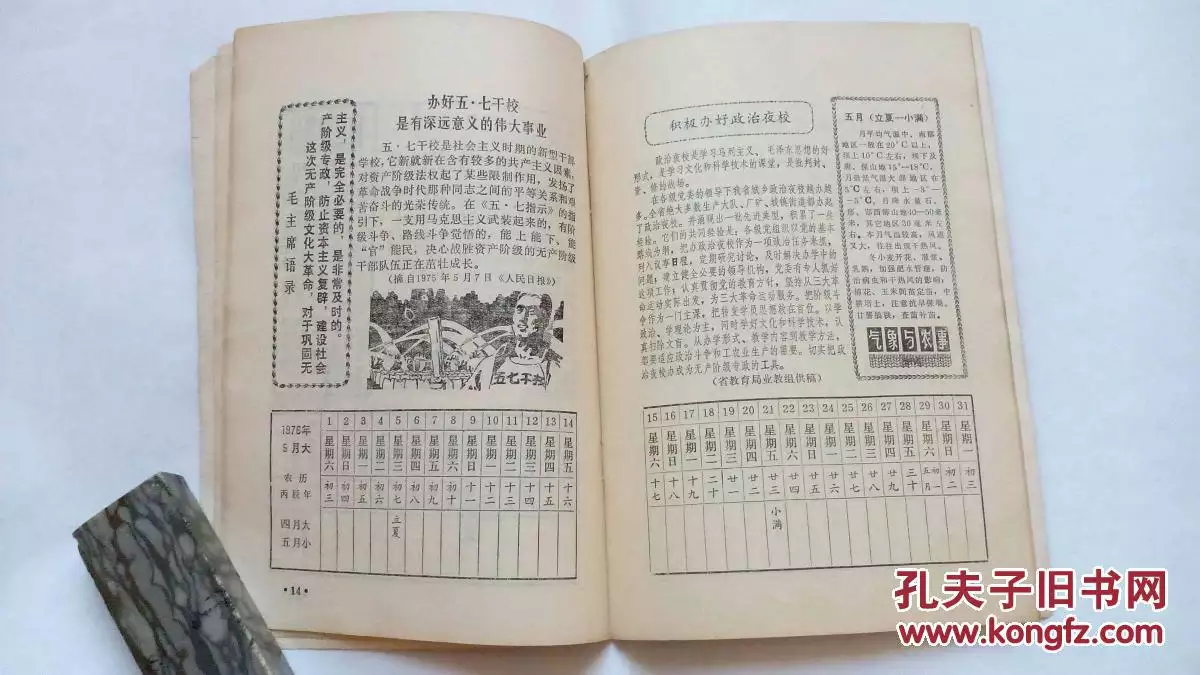 主义，是完全必要的，是非常及时的。
产阶级专政，防止资本主义复辟，建设社会
这次无产阶级文化大革命，对于巩固无
毛主席语录
办好五·七干校
是有深远意义的伟大事业
五·七干校是社会主义时期的新型干部
学校，它新就新在含有较多的共产主义因素，
对资产阶级法权起了某些限制作用，发扬了
革命战争时代那种同志之间的平等关系和艰
苦奋斗的光荣传统。在《五·七指示》的指
引下，一支用马克思主义武装起来的，有阶
级斗争、路线斗争觉悟的，能上能下、能
“官”能民，决心战胜资产阶级的无产阶级
干部队伍正在茁壮成长。
（摘自1975年5月7日《人民日报》）
五七干校
1976年
5月大
农历
丙辰年
四月大
五月小
1 2 3 4 5 6 7 8 9 10 11 12 13 14
星期六 星期日 星期一 星期二 星期三 星期四 星期五 星期六 星期日 星期一 星期二 星期三 星期四 星期五
初三 初四 初五 初六 初七 初八 初九 初十 十一 十二 十三 十四 十五 十六
立夏
·14·
积极办好政治夜校
政治夜校是学习马列主义、毛泽东思想的好
形式，是学习文化和科学技术的课堂，是批判封、
资、修的战场。
在各级党委的领导下我省城乡政治夜校越办越
多。全省绝大多数生产大队、厂矿、城镇街道都办起
了政治夜校。并涌现出一批先进典型，积累了一些
经验。它们的共同经验是：各级党组织以党的基本
路线为纲，把办政治夜校作为一项政治任务来抓，
列入议事日程，定期研究讨论，及时解决办学中的
问题；建立健全必要的领导机构，党委有专人抓好
这项工作；认真贯彻党的教育方针，坚持从三大革
命运动实际出发，为三大革命运动服务。把阶级斗
争作为一门主课，把转变学员思想放在首位。以学
政治、学理论为主，同时学好文化和科学技术。认
真扫除文盲。从办学形式、教学内容到教学方法，
都要适应政治斗争和工农业生产的需要。切实把政
治夜校办成为无产阶级专政的工具。
（省教育局业教组供稿）
五月（立夏—小满）
月平均气温中、南部
地区一般在20°C以上，
坝上10°C左右，坝下及
南、保山地15°—18°C。
月最低气温大部地区在
5°C左右，坝上-3°—
-5°C。月降水量石、
邢、邯西部山地40—50毫
米其它地区30毫米左右
。本月气温较高，风速
又大，往往出现干热风。
冬小麦开花、灌浆、
乳熟，加强肥水管理，防
治病虫和干热风的影响；
棉花、玉米间苗定苗，中
耕培土，注意抗旱保墒。
甘薯插秧，查苗补苗。
气象与农事
15 16 17 18 19 20 21 22 23 24 25 26 27 28 29 30 31
星期六 星期日 星期一 星期二 星期三 星期四 星期五 星期六 星期日 星期一 星期二 星期三 星期四 星期五 星期六 星期日 星期一
十七 十八 十九 二十 廿一 廿二 廿三 廿四 廿五 廿六 廿七 廿八 廿九 三十 五月 初一 初二 初三
小满
孔夫子旧书网
www.kongfz.com